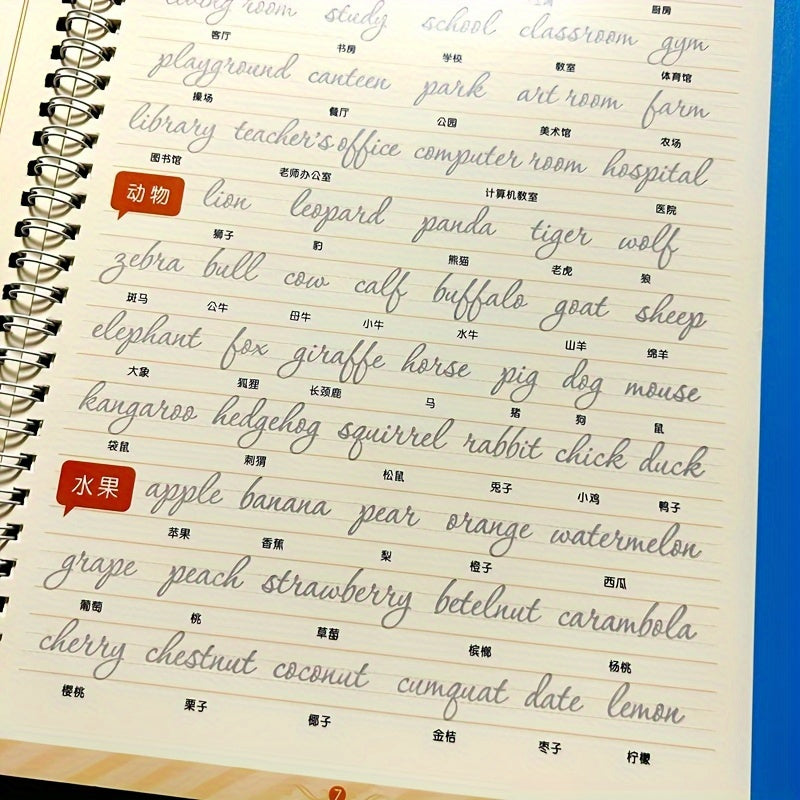 living room study school classroom gym
厨房
客厅 书房 学校 教室 体育馆
playground canteen park art room farm
操场 餐厅 公园 美术馆 农场
library teacher's office computer room hospital
图书馆 老师办公室 计算机教室 医院
动物 lion leopard panda tiger wolf
狮子 豹 熊猫 老虎 狼
zebra bull cow calf buffalo goat sheep
斑马 公牛 母牛 小牛 水牛 山羊 绵羊
elephant fox giraffe horse pig dog mouse
大象 狐狸 长颈鹿 马 猪 狗 鼠
kangaroo hedgehog squirrel rabbit chick duck
袋鼠 刺猬 松鼠 兔子 小鸡 鸭子
水果 apple banana pear orange watermelon
苹果 香蕉 梨 橙子 西瓜
grape peach strawberry betelnut carambola
葡萄 桃 草莓 槟榔 杨桃
cherry chestnut coconut cumquat date lemon
樱桃 栗子 椰子 金桔 枣子 柠檬
7